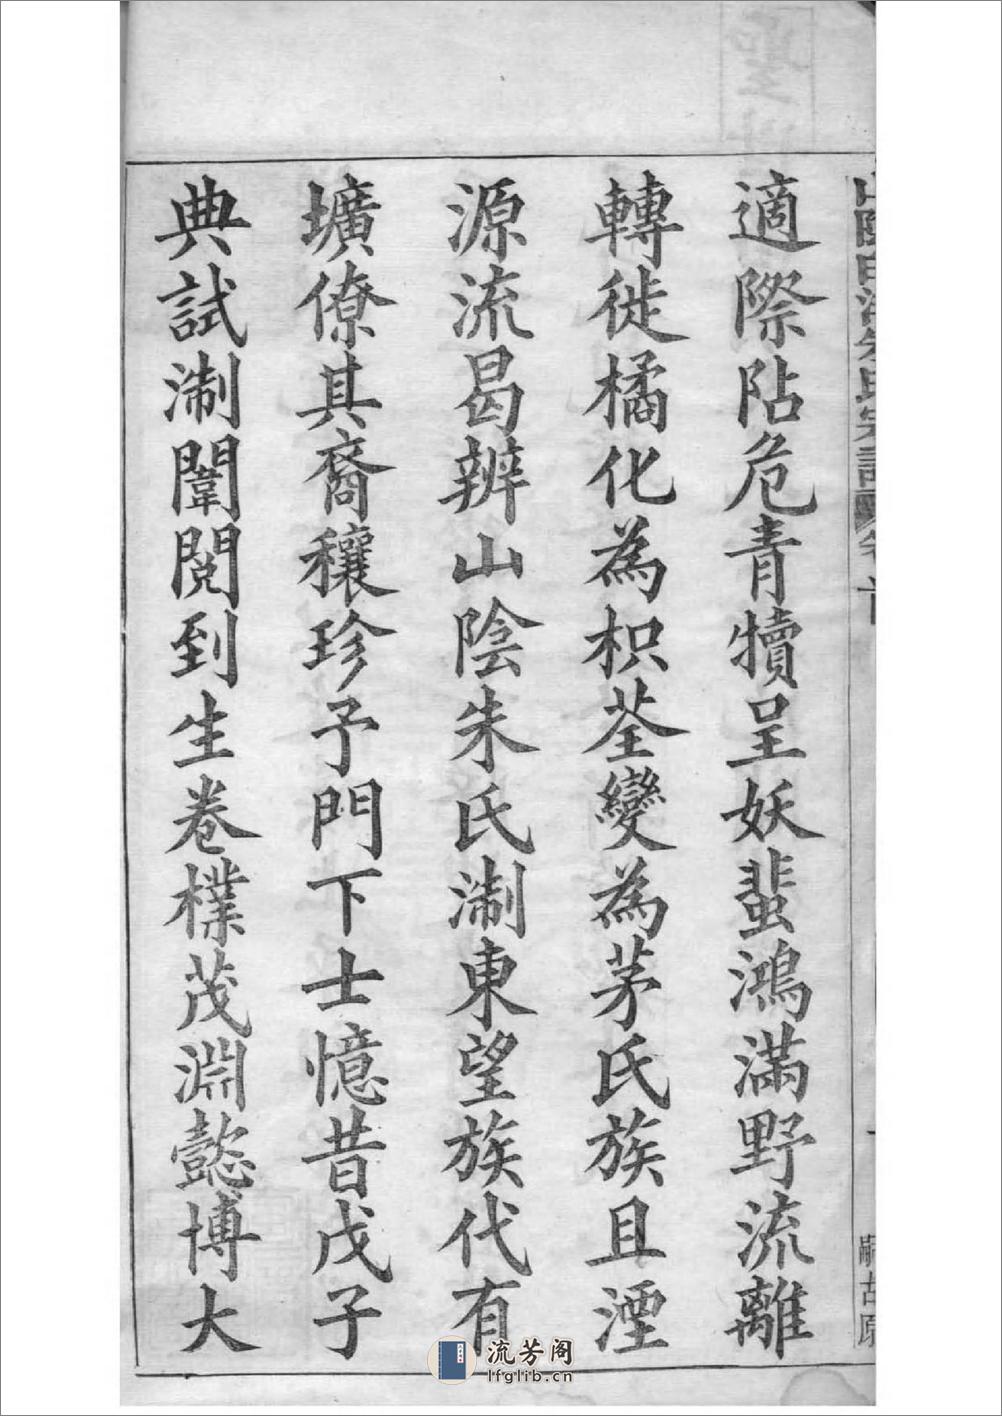 適際阽危青犢呈妖蜚鴻滿野流離
轉徙橘化為枳荃變為茅氏族且湮
源流曷辨山陰朱氏淛東望族代有
壙僚其裔穰珍予門下士憶昔戊子
典試淛闈閱到生卷樸茂淵懿博大
流芳阁
lfglib.cn